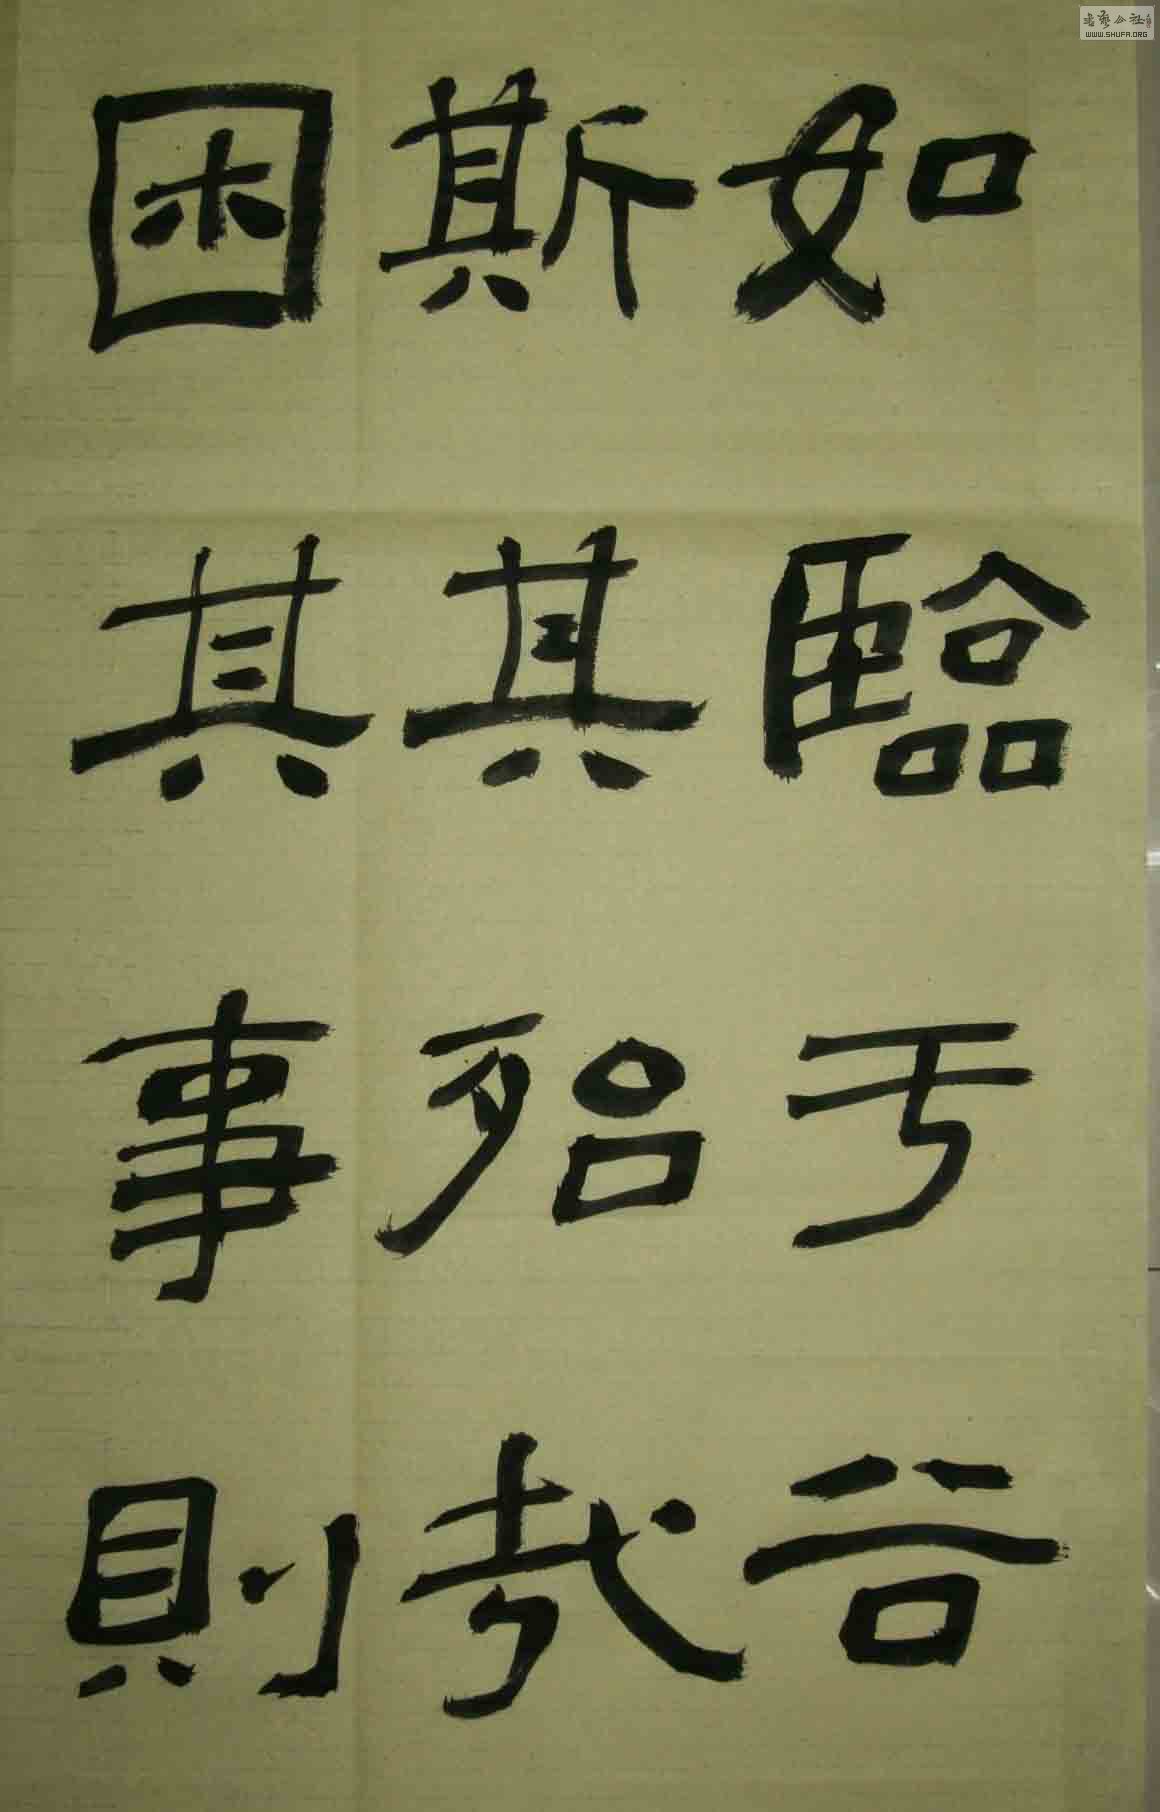 如臨于谷
斯其殆哉
困其事則
書藝公社
WWW.SHUFA.ORG